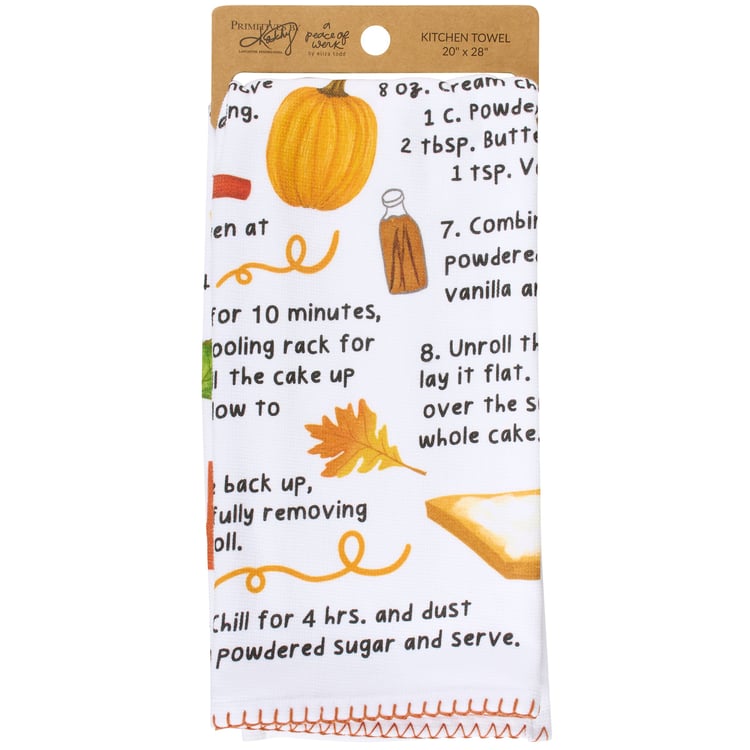 PRIMITIVES BY
Kathy
a
peace of
work
by elise todd
KITCHEN TOWEL
20" x 28"
ng.
8 oz. Cream Ch
1 C. Powde
2 tbsp. Butte
1 tsp. Va
en at
7. Combin
powdere
vanilla an
for 10 minutes,
ooling rack for
the cake up
low to
8. Unroll th
lay it flat.
over the s
whole cake.
back up,
fully removing
oll.
Chill for 4 hrs. and dust
powdered sugar and serve.